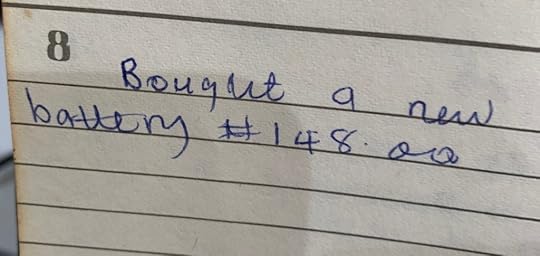 8
Bought a new
battery #148.00